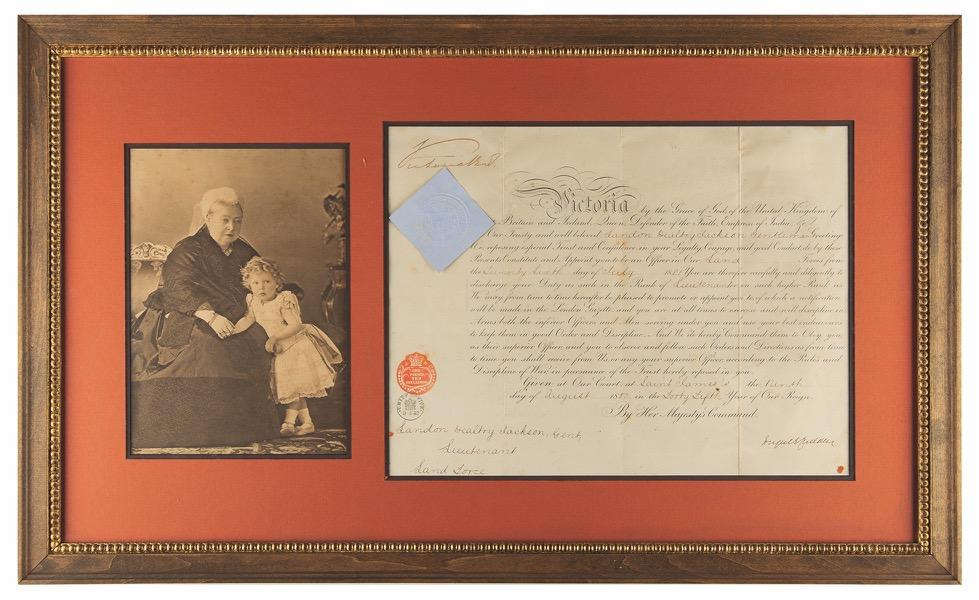 Victoria R I
Victoria by the Grace of God, of the United Kingdom of
Britain and Ireland Queen, Defender of the Faith, Empress of India, &c
Our Trusty and well beloved Landon Dealtry Jackson Gentleman Greeting
We, reposing especial Trust and Confidence in your Loyalty, Courage, and good Conduct, do by these
Presents Constitute and Appoint you to be an Officer in Our Land Forces from
the Twenty Sixth day of July 188 You are therefore carefully and diligently to
discharge your Duty as such in the Rank of Lieutenant or in such higher Rank as
We may from time to time hereafter be pleased to promote or appoint you to, of which a notification
will be made in the London Gazette, and you are at all times to exercise and well discipline in
Arms both the inferior Officers and Men serving under you and use your best endeavours
to keep them in good Order and Discipline. And We do hereby Command them to Obey you
as their superior Officer and you to observe and follow such Orders and Directions as from time
to time you shall receive from Us, or any your superior Officer, according to the Rules and
Discipline of War, in pursuance of the Trust hereby reposed in you.
Given at Our Court, at Saint James's the Ninth
day of August 188 in the Forty Sixth Year of Our Reign.
By Her Majesty's Command.
Landon Dealtry Jackson, Gent,
Lieutenant
Land Force